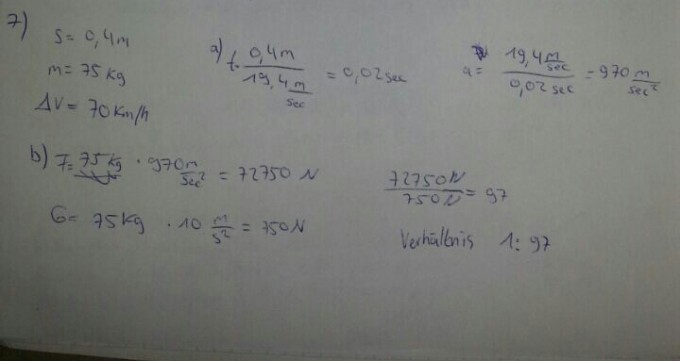 7)
S = 0,4m
m = 75 kg
ΔV = 70 Km/h
a) t = 0,4m / 19,4 m/sec = 0,02 sec
a = 19,4 m/sec / 0,02 sec = 970 m/sec²
b) F = 75 kg · 970 m/sec² = 72750 N
G = 75 Kg · 10 m/s² = 750 N
72750 N / 750 N = 97
Verhältnis 1: 97